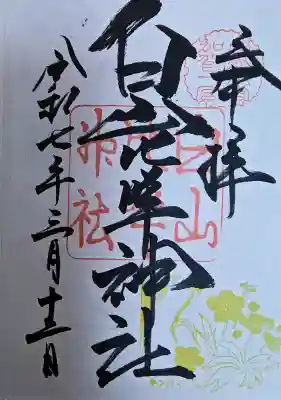 奉拝
白山比咩神社
令和七年三月十三日
白山
比咩
神社